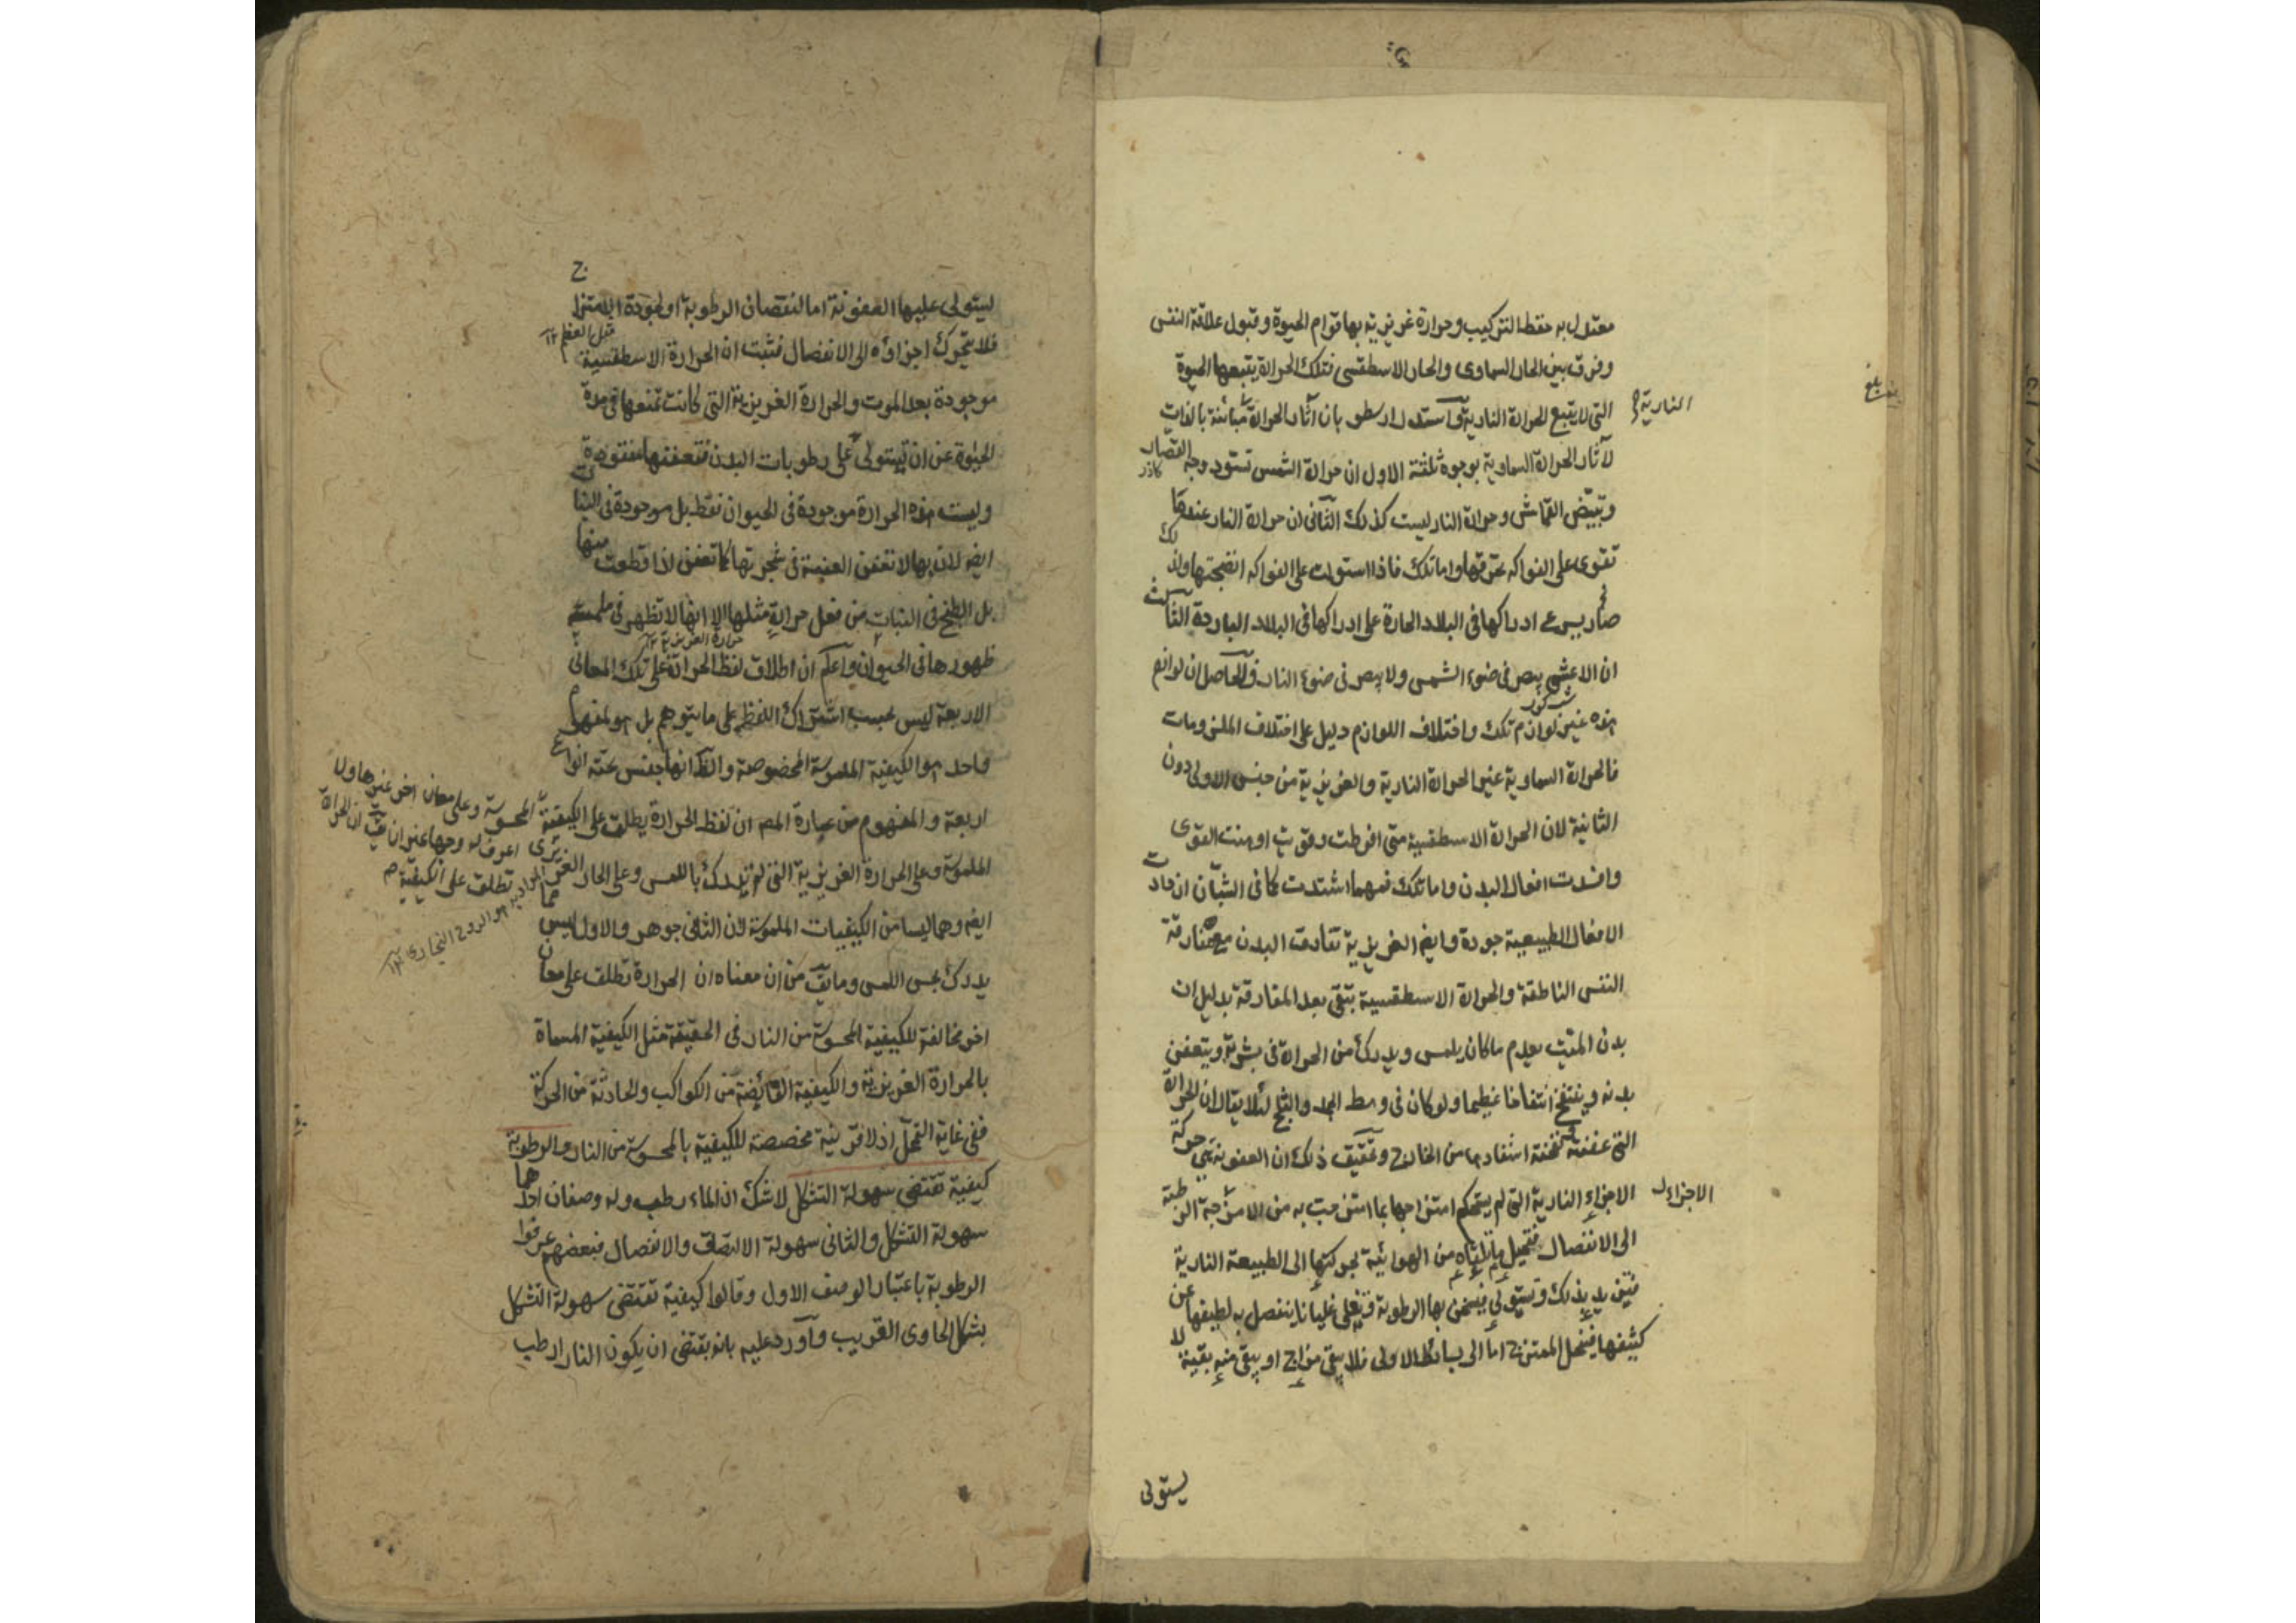 معتدل به حفظ التركيب وحرارة غريزية بها قوام الحيوة وقبول علاقة النفس
وفرق بين الحار السماوى والحار الاسطقسى فتلك الحرارة يتبعها الحيوة
التى لا يتبع الحرارة النارية واستدل ارسطو بان آثار الحرارة مباينة بالذات
النارية
لآثار الحرارة السماوية بوجوه ثلثة الاول ان حرارة الشمس تسود وجه القصار
كاذر
وتبيّض القماش وحرارة النار ليست كذلك الثانى ان حرارة النار عندما
تقوى على الفواكه تحرقها واما تلك فاذا استولت على الفواكه انضجتها ولذلك
صار يسرع ادراكها فى البلاد الحارة على ادراكها فى البلاد الباردة الثالث
ان الاعشى يبصر فى ضوء الشمس ولا يبصر فى ضوء النار والحاصل ان لوازم
شب كور
هذه غير لوازم تلك واختلاف اللوازم دليل على اختلاف الملزومات
فالحرارة السماوية غير الحرارة النارية والغريزية من جنس الاولى دون
الثانية لان الحرارة الاسطقسية متى افرطت وقويت اوهنت القوى
وافسدت افعال البدن واما تلك فمهما اشتدت كما فى الشبّان ازدادت
الافعال الطبيعية جودة وايضا الغريزية تفارق البدن مع مفارقة
النفس الناطقة والحرارة الاسطقسية تبقى بعد المفارقة بدليل ان
بدن الميت يعدم ما كان يلمس ويدرك من الحرارة فى بشرته ويتعفن
بدنه وينتفخ انتفاخا عظيما ولو كان فى وسط الجمد والثلج لئلا يقال ان الحرارة
التى عفنته سخنته استفادها من الخارج وتحقيق ذلك ان العفونة هى حركة
الاجزاء النارية التى لم يستحكم امتزاجها بما امتزجت به من الامزجة الرطبة
الاجزاء
الى الانفصال فتحيل ما تلقاه من الهوائية بحركتها الى الطبيعة النارية
فتزيد بذلك وتستولى فيسخن بها الرطوبة وتغلى غليانا ينفصل به لطيفها عن
كثيفها فينحل الممتزج اما الى بسائط الاولى فلا يبقى مزاج او يبقى منه بقية لا
يستولى
ليستولى عليها العفونة اما لنقصان الرطوبة او لجودة الامتزاج
فلا يتحرك اجزاؤه الى الانفصال فثبت ان الحرارة الاسطقسية
مثل العظم ١٢
موجودة بعد الموت والحرارة الغريزية التى كانت تمنعها فى مدة
الحيوة عن ان تستولى على رطوبات البدن فتعفنها مفقودة
وليست هذه الحرارة موجودة فى الحيوان فقط بل موجودة فى النبات
ايضا لان بها لا تتعفن العفنة فى شجرتها كما تعفن اذا قطعت منها
بل الطبخ فى النبات من فعل حرارة مثلها الا انها لا تظهر فى ملمسه
حرارة الغريزية ١٢
ظهورها فى الحيوان واعلم ان اطلاق لفظ الحرارة على تلك المعانى
الاربعة ليس بحسب اشتراك اللفظ على ما يتوهم بل هو لمفهوم
واحد هو الكيفية الملموسة المخصوصة والظ انها جنس تحته انواع
اربعة والمفهوم من عبارة المص ان لفظ الحرارة يطلق على الكيفية
المحسوسة وعلى معان اخر غيرها ولا
اعرف له وجها غير ان يق ان الحرارة
تطلق على الكيفية
الملموسة وعلى الحرارة الغريزية التى لم تدرك باللمس وعلى الحار الغريزى
المراد به هو الروح البخارى ١٢
ايضا وهما ليسا من الكيفيات الملموسة لان الثانى جوهر والاول ليس مما
يدرك بحس اللمس وما يق من ان معناه ان الحرارة تطلق على معان
اخر مخالفة للكيفية المحسوسة من النار فى الحقيقة مثل الكيفية المسماة
بالحرارة الغريزية والكيفية الفائضة من الكواكب والحادثة من الحركة
ففى غاية التمحل اذ لا قرينة مخصصة للكيفية بالمحسوسة من النار والرطوبة
كيفية تقتضى سهولة التشكل لا شك ان الماء رطب وله وصفان احدهما
سهولة التشكل والثانى سهولة الالتصاق والانفصال فبعضهم عرفوا
الرطوبة باعتبار الوصف الاول وقالوا كيفية تقتضى سهولة التشكل
بشكل الحاوى القريب وآورد عليه بانه يقتضى ان يكون النار ارطب